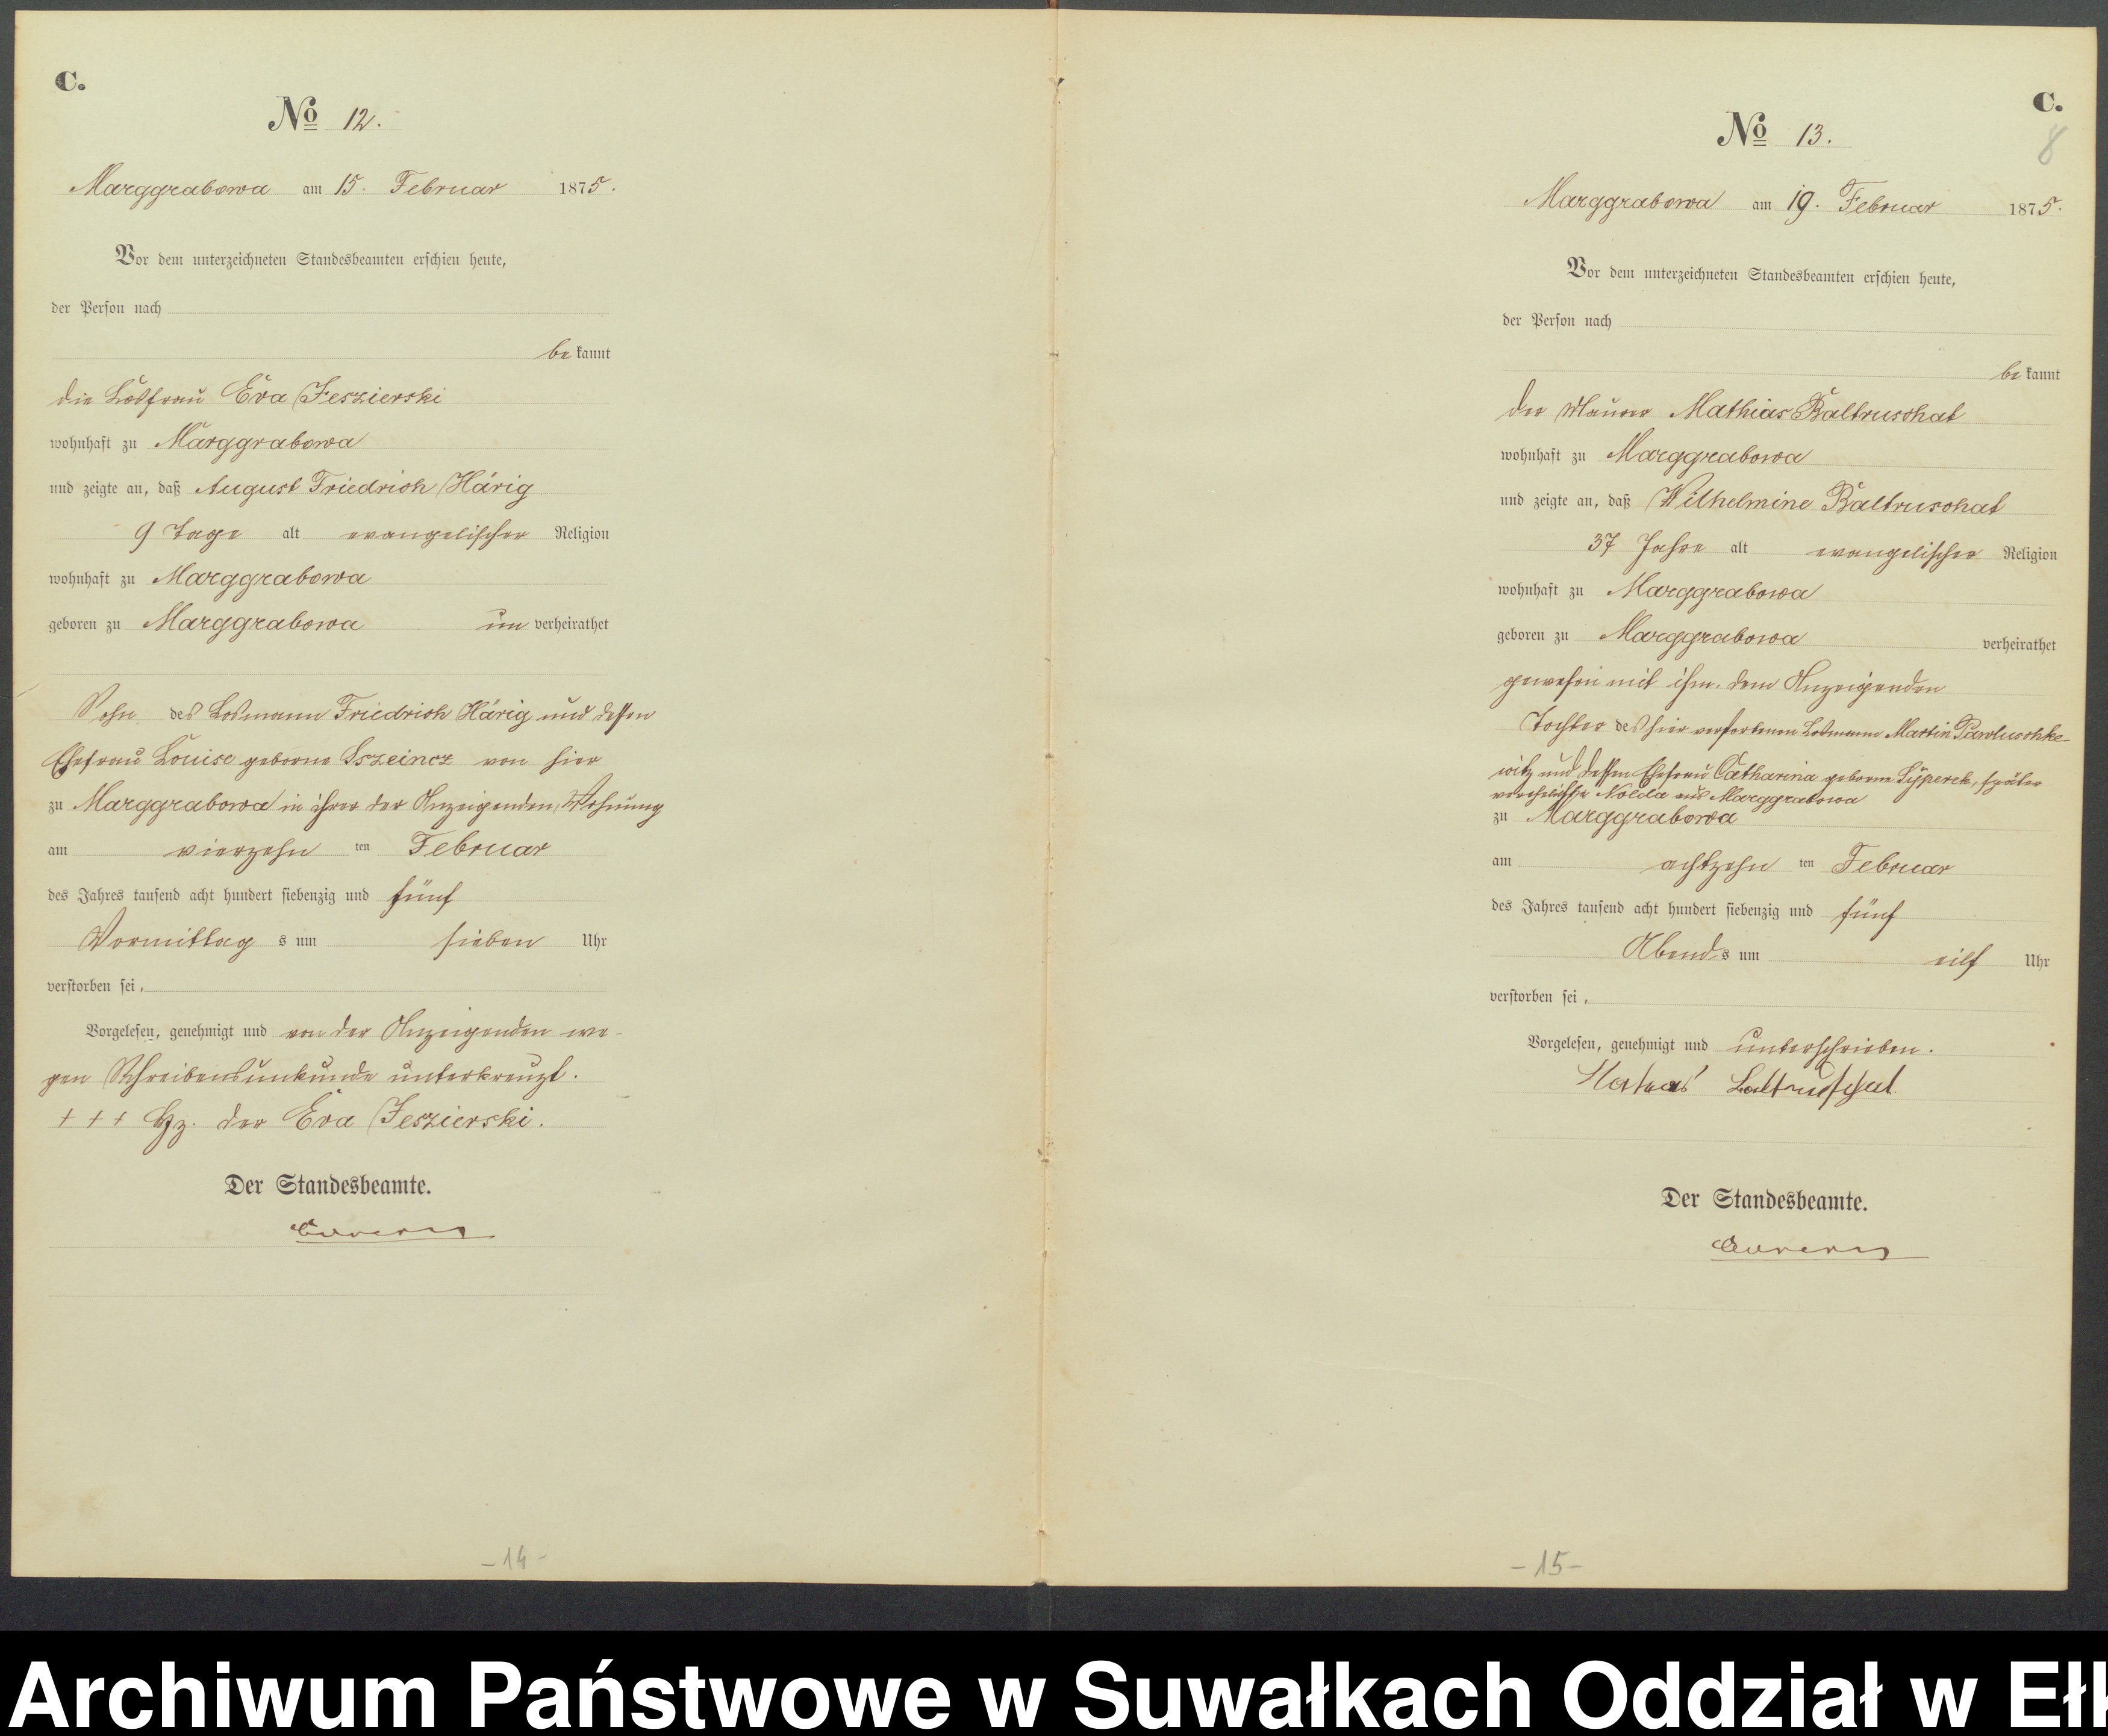 C.
No 12.
Marggrabowa am 15. Februar 1875.
Vor dem unterzeichneten Standesbeamten erschien heute,
der Person nach
bekannt
die Losfrau Eva Jeszierski
wohnhaft zu Marggrabowa
und zeigte an, daß August Friedrich Härig
9 Tage alt evangelischer Religion
wohnhaft zu Marggrabowa
geboren zu Marggrabowa unverheirathet
Sohn des Losmann Friedrich Härig und dessen
Ehefrau Louise geborne von hier
zu Marggrabowa in ihrer der Anzeigenden, Wohnung
am vierzehn ten Februar
des Jahres tausend acht hundert siebenzig und fünf
Vormittags um sieben Uhr
verstorben sei.
Vorgelesen, genehmigt und von der Anzeigenden we-
gen Schreibensunkunde unterkreuzt.
+ + + Hz. der Eva Jeszierski.
Der Standesbeamte.
- 14 -
C.
8
No 13.
Marggrabowa am 19. Februar 1875.
Vor dem unterzeichneten Standesbeamten erschien heute,
der Person nach
bekannt
der Maurer Mathias Baltruschat
wohnhaft zu Marggrabowa
und zeigte an, daß Wilhelmine Baltruschat
37 Jahre alt evangelischer Religion
wohnhaft zu Marggrabowa
geboren zu Marggrabowa verheirathet
gewesen mit ihm, dem Anzeigenden
Tochter des hier verstorbenen Losmann Martin Pawluschke-
witz und dessen Ehefrau Catharina geborne Syperek, später
verehelichte Nolda aus Marggrabowa
zu Marggrabowa
am achtzehn ten Februar
des Jahres tausend acht hundert siebenzig und fünf
Abends um eilf Uhr
verstorben sei.
Vorgelesen, genehmigt und unterschrieben.
Baltruschat
Der Standesbeamte.
- 15 -
Archiwum Państwowe w Suwałkach Oddział w Ełk